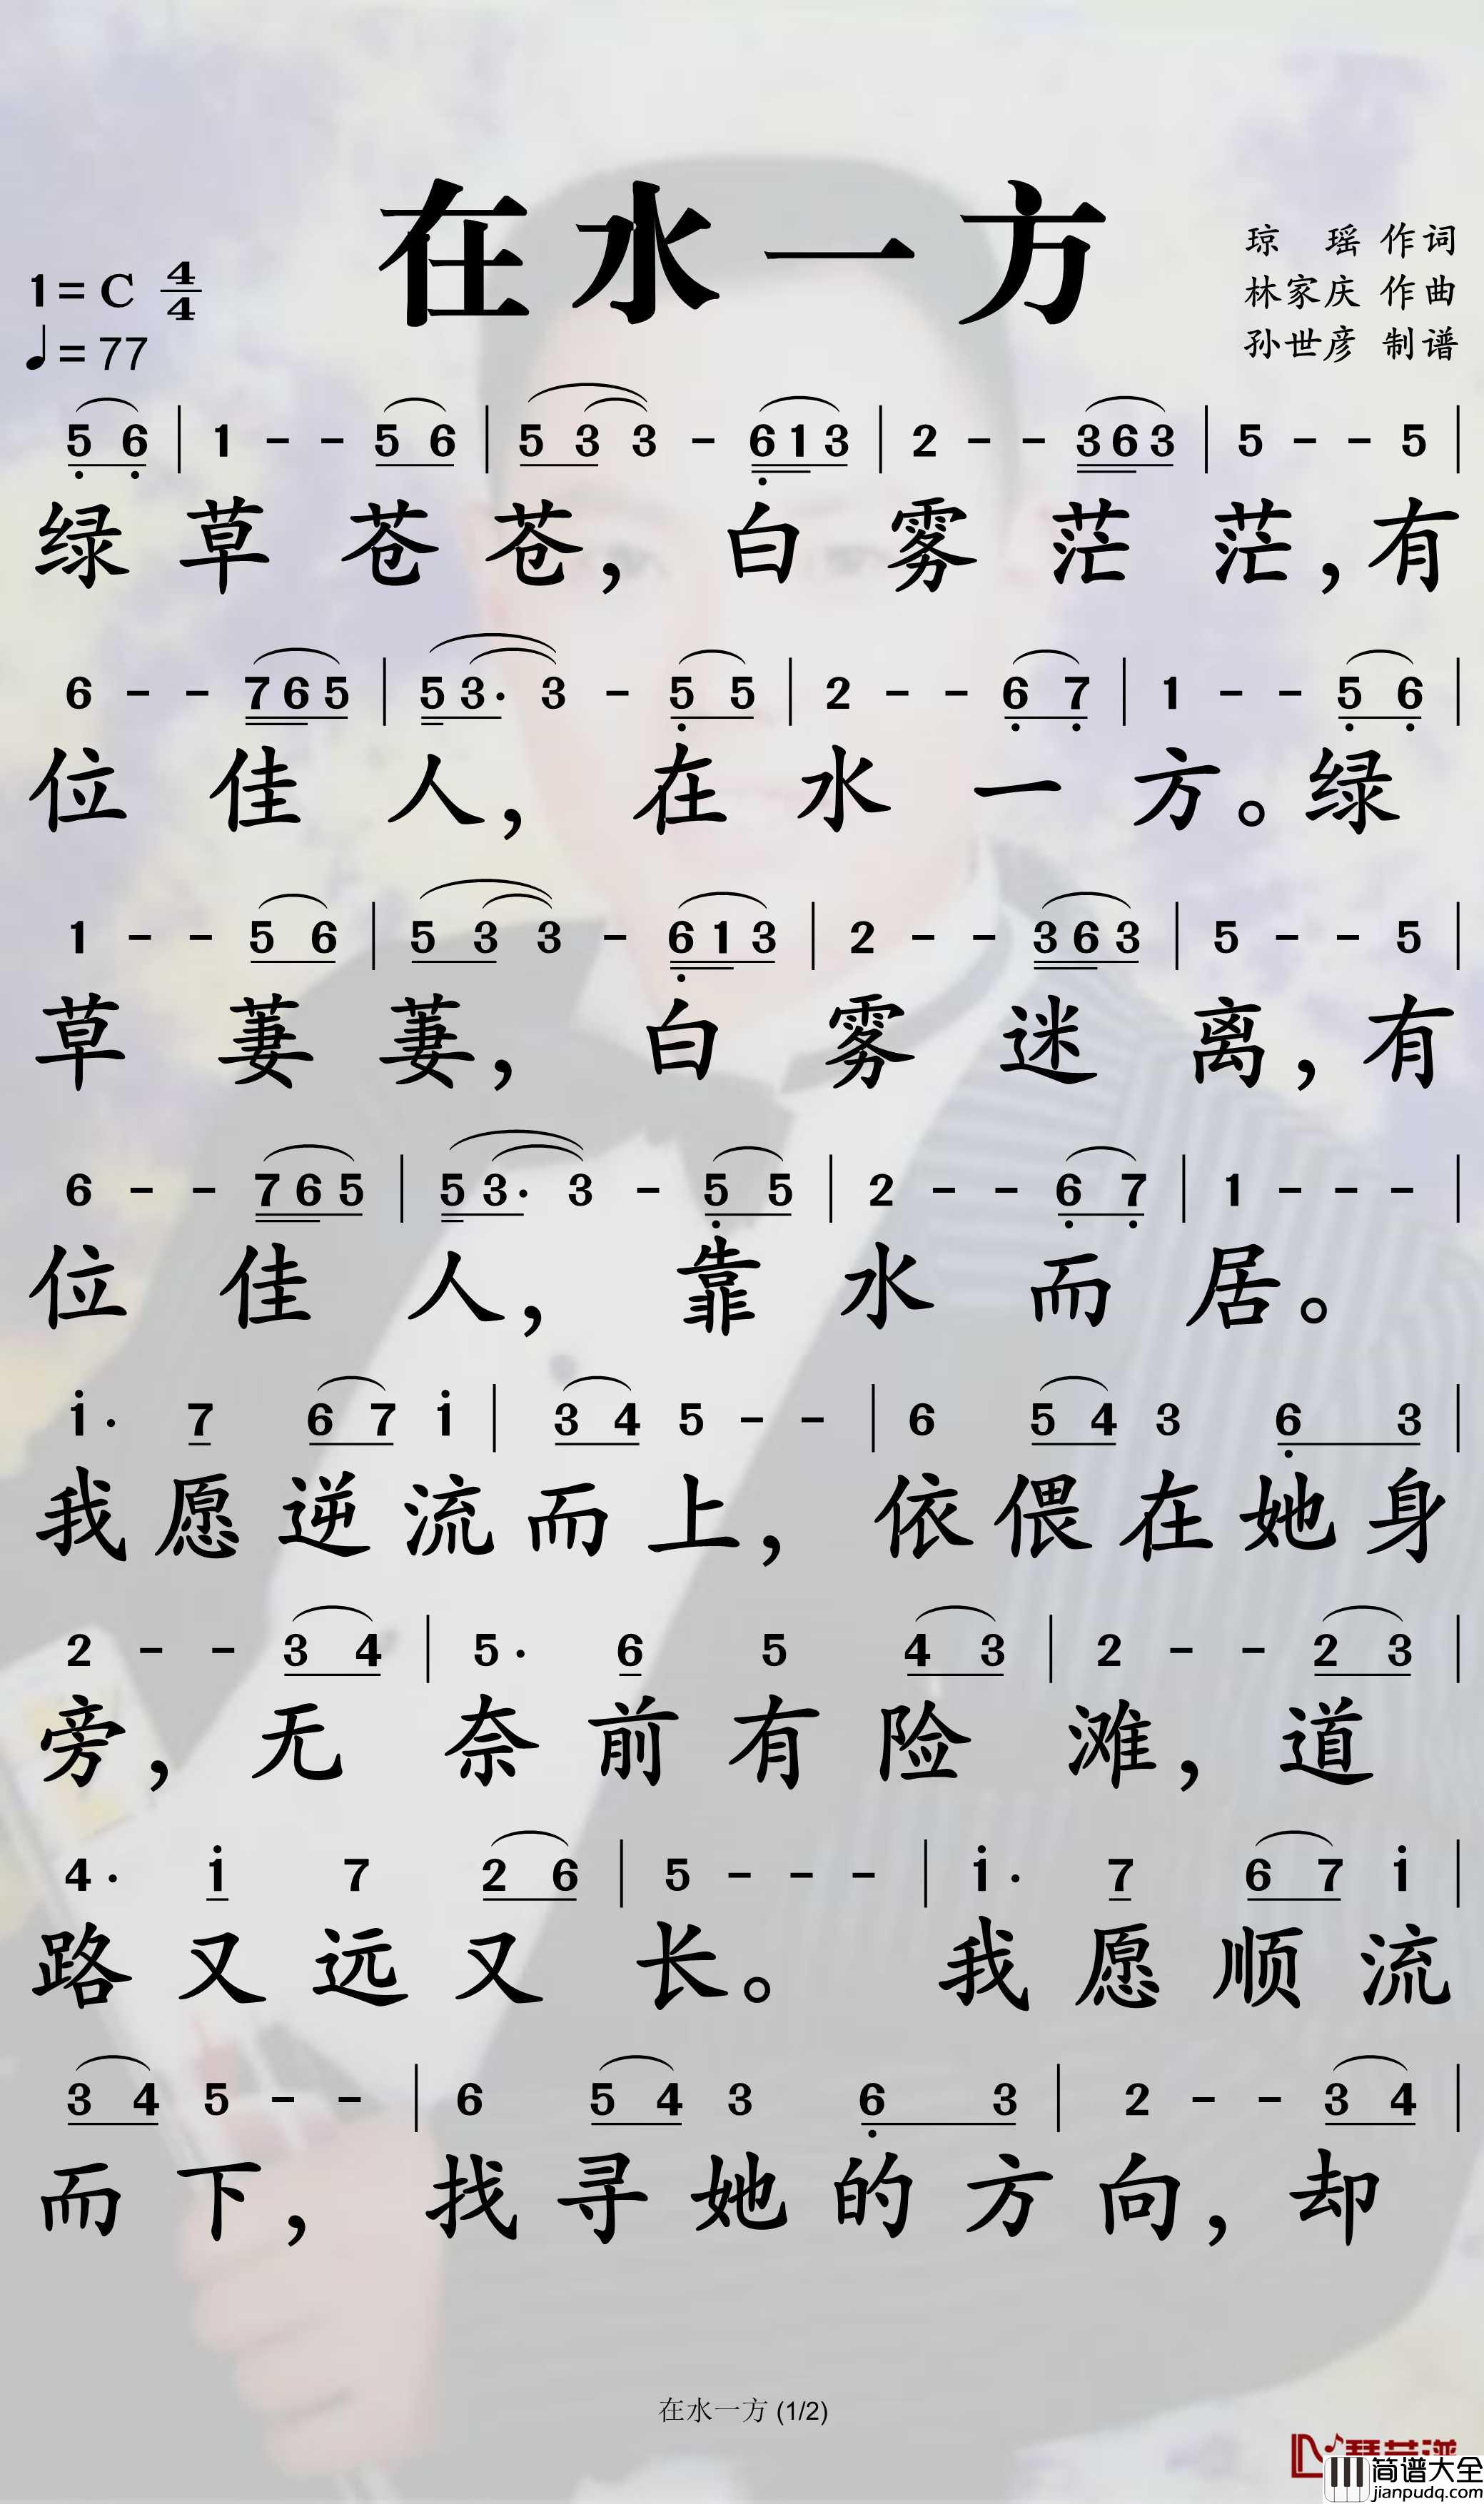 在水一方
1=C 4/4
♩=77
琼 瑶 作词
林家庆 作曲
孙世彦 制谱
5 6 | 1 - - 5 6 | 5 3 3 - 6 1 3 | 2 - - 3 6 3 | 5 - - 5 |
绿草苍苍，白雾茫茫，有
6 - - 7 6 5 | 5 3· 3 - 5 5 | 2 - - 6 7 | 1 - - 5 6 |
位佳人，在水一方。绿
1 - - 5 6 | 5 3 3 - 6 1 3 | 2 - - 3 6 3 | 5 - - 5 |
草萋萋，白雾迷离，有
6 - - 7 6 5 | 5 3· 3 - 5 5 | 2 - - 6 7 | 1 - - - |
位佳人，靠水而居。
i· 7 6 7 i | 3 4 5 - - | 6 5 4 3 6 3 |
我愿逆流而上，依偎在她身
2 - - 3 4 | 5· 6 5 4 3 | 2 - - 2 3 |
旁，无奈前有险滩，道
4· i 7 2 6 | 5 - - - | i· 7 6 7 i |
路又远又长。我愿顺流
3 4 5 - - | 6 5 4 3 6 3 | 2 - - 3 4 |
而下，找寻她的方向，却
在水一方 (1/2)
简谱大全
jianpudq.com